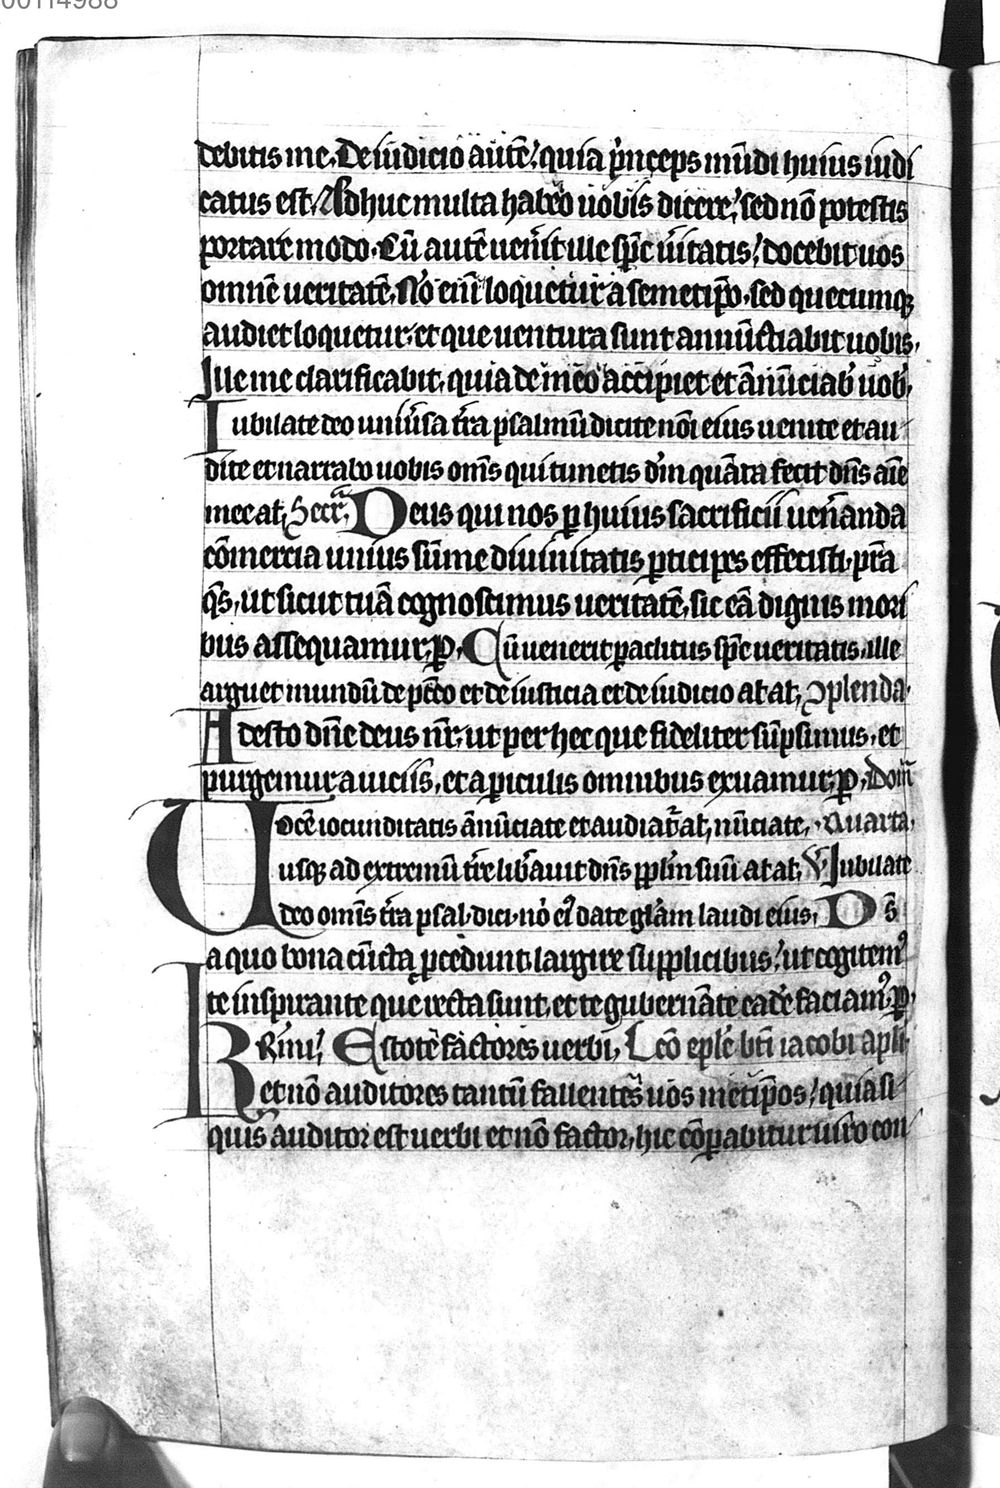 00114988
debitis me. De iudicio aute̅. quia p̍nceps mu̅di huius iudi
catus est. Adhuc multa habeo uobis dicere. sed no̅ potestis
portare modo. Cu̅ aute̅ uen̅it ille sp̅c u̅itatis. docebit uos
omne̅ ueritate̅. No̅ eni̅ loquetur a semetip̅o. sed quecumq;
audiet loquetur. et que uentura sunt annu̅ctiabit uobis.
Ille me clarificabit. quia de meo accipiet et a̅nu̅ciab̍ uob̍.
Iubilate deo uniu̍sa t̍ra psalmu̅ dicite no̅i eius uenite et au
dite et narrabo uobis om̅s qui timetis d̅m qua̅ta fecit dn̅s ai̅e
mee at, Secr̅. Deus qui nos p̱ huius sacrificii uen̅anda
co̅mercia unius su̅me diuinitatis p̱ticipes effecisti. pr̅a
q̅s. ut sicut tua̅ cognoscimus ueritate̅. sic ea̅ dignis mori
bus assequamur. p̱. Cu̅ uenerit p̱aclitus sp̅c ueritatis. ille
arguet mundu̅ de pc̅co et de iusticia et de iudicio at at, 9plenda.
Adesto dn̅e deus nr̅. ut per hec que fideliter su̅psimus. et
purgemur a uiciis. et a p̱iculis omnibus exuamur. p̱. Dom̅
Uoce̅ iocunditatis a̅nu̅ciate et audiat̅ at, nu̅ciate. Quarta.
usq; ad extremu̅ t̅re lib̍auit dn̅s ppl̅m suu̅ at at, V Iubilate
deo om̅s t̍ra psal. dici. no̍ ei9 date gl̅am laudi eius. D s̅
a quo bona cu̅cta p̱cedunt. largire supplicibus. ut cogitem9
te inspirante que recta sunt. et te guberna̅te eade̅ faciam9. p̱.
K Rm̅i. Estote factores uerbi. Lc̅o ep̅le bt̅i iacobi apl̅i.
et no̅ auditores tantu̅ fallentes uos metip̅os. quia si
quis auditor est uerbi et no̅ factor. hic co̅p̱abitur uiro con